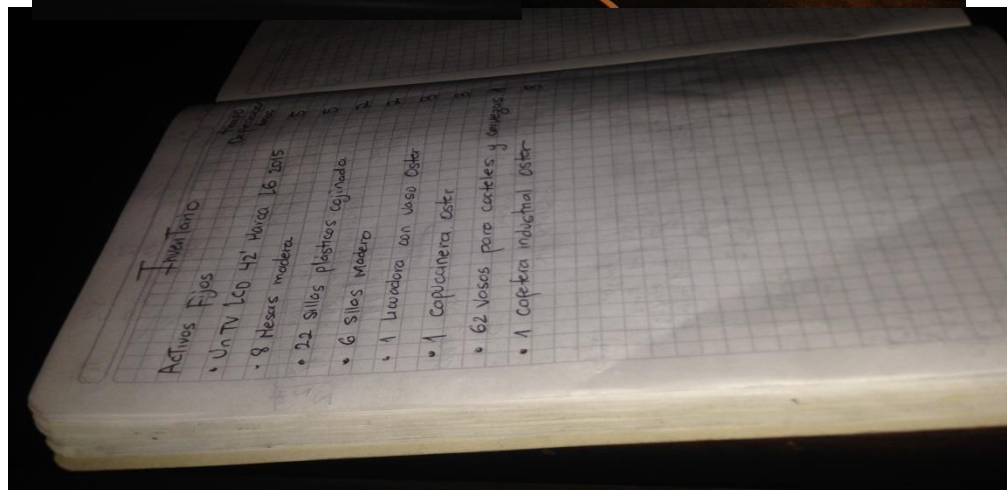 Inventario
Activos Fijos
• Un TV LCD 42' Marca LG 2015 5
• 8 Mesas madera 5
• 22 sillas plásticos cojinada 7
• 6 sillas Madera 7
• 1 Licuadora con vaso Oster 5
• 1 Capuccinera Oster
• 62 Vasos para cocteles y cervezas 1
• 1 Cafetera industrial oster